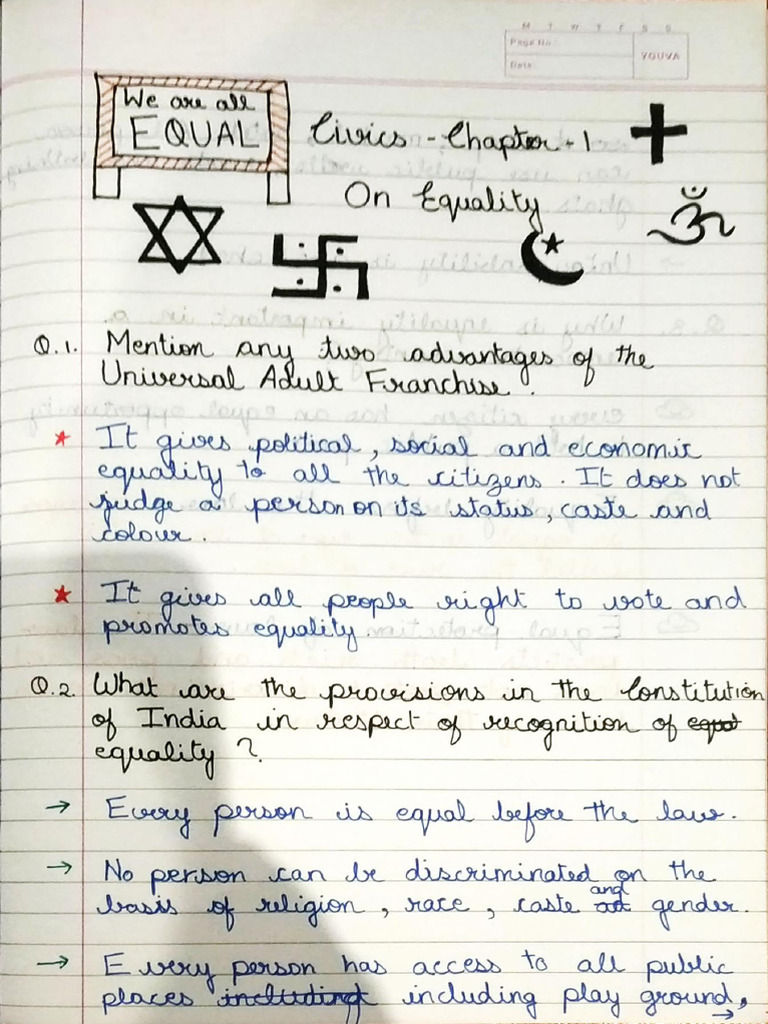 M T W T F S S
Page No.
Date
YOUVA
We are all
EQUAL
Civics - Chapter - 1
On Equality
Q.1. Mention any two advantages of the
Universal Adult Franchise.
It gives political, social and economic
equality to all the citizens. It does not
judge a person on its status, caste and
colour.
It gives all people right to vote and
promotes equality.
Q.2. What are the provisions in the Constitution
of India in respect of recognition of equal
equality?
→ Every person is equal before the law.
→ No person can be discriminated on the
basis of religion, race, caste and gender.
→ Every person has access to all public
places including including play ground,
→